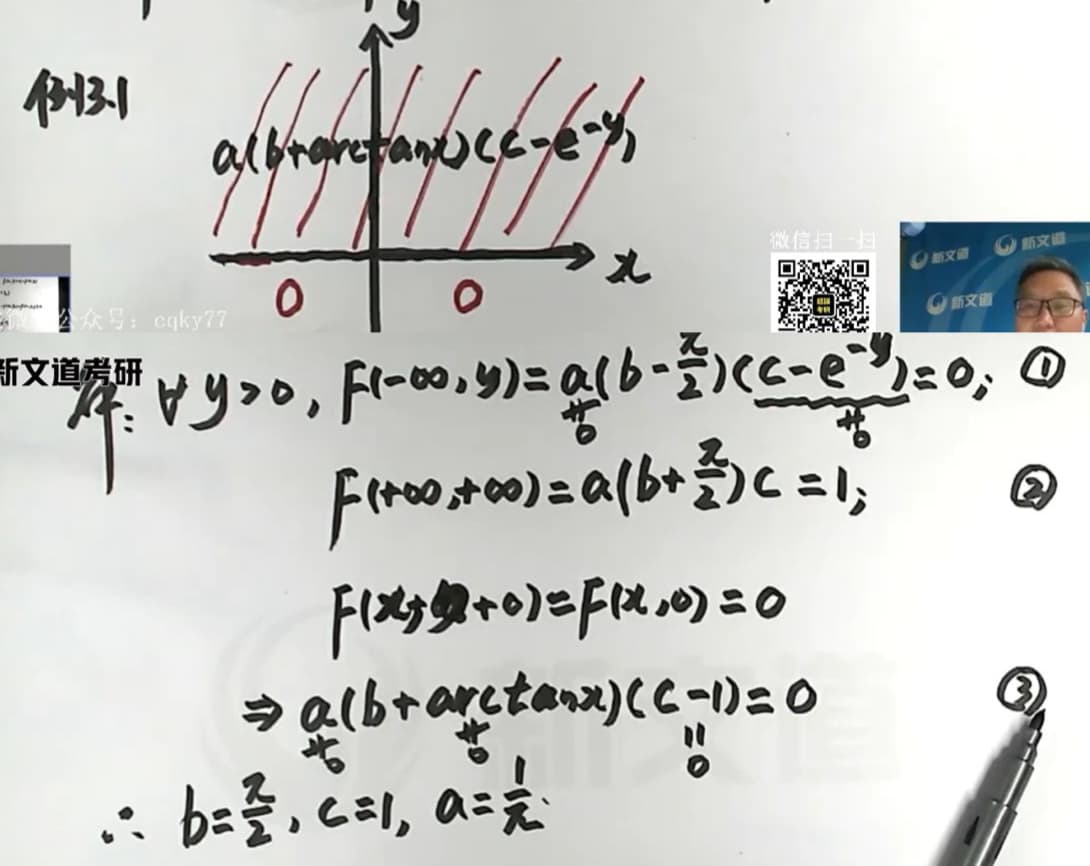 y
例3.1
a(b+arctanx)(c-e^{-y})
x
0 0
微信扫一扫
新文道 新文道
新文道
公众号: cqky77
新文道考研
解: ∀y>0, F(-∞,y)=a(b-π/2)(c-e^{-y})=0; ①
≠0 ≠0
F(+∞,+∞)=a(b+π/2)c=1; ②
F(x,+0)=F(x,0)=0
⇒ a(b+arctanx)(c-1)=0 ③
≠0 ≠0 =0
新文道
∴ b=π/2, c=1, a=1/π.